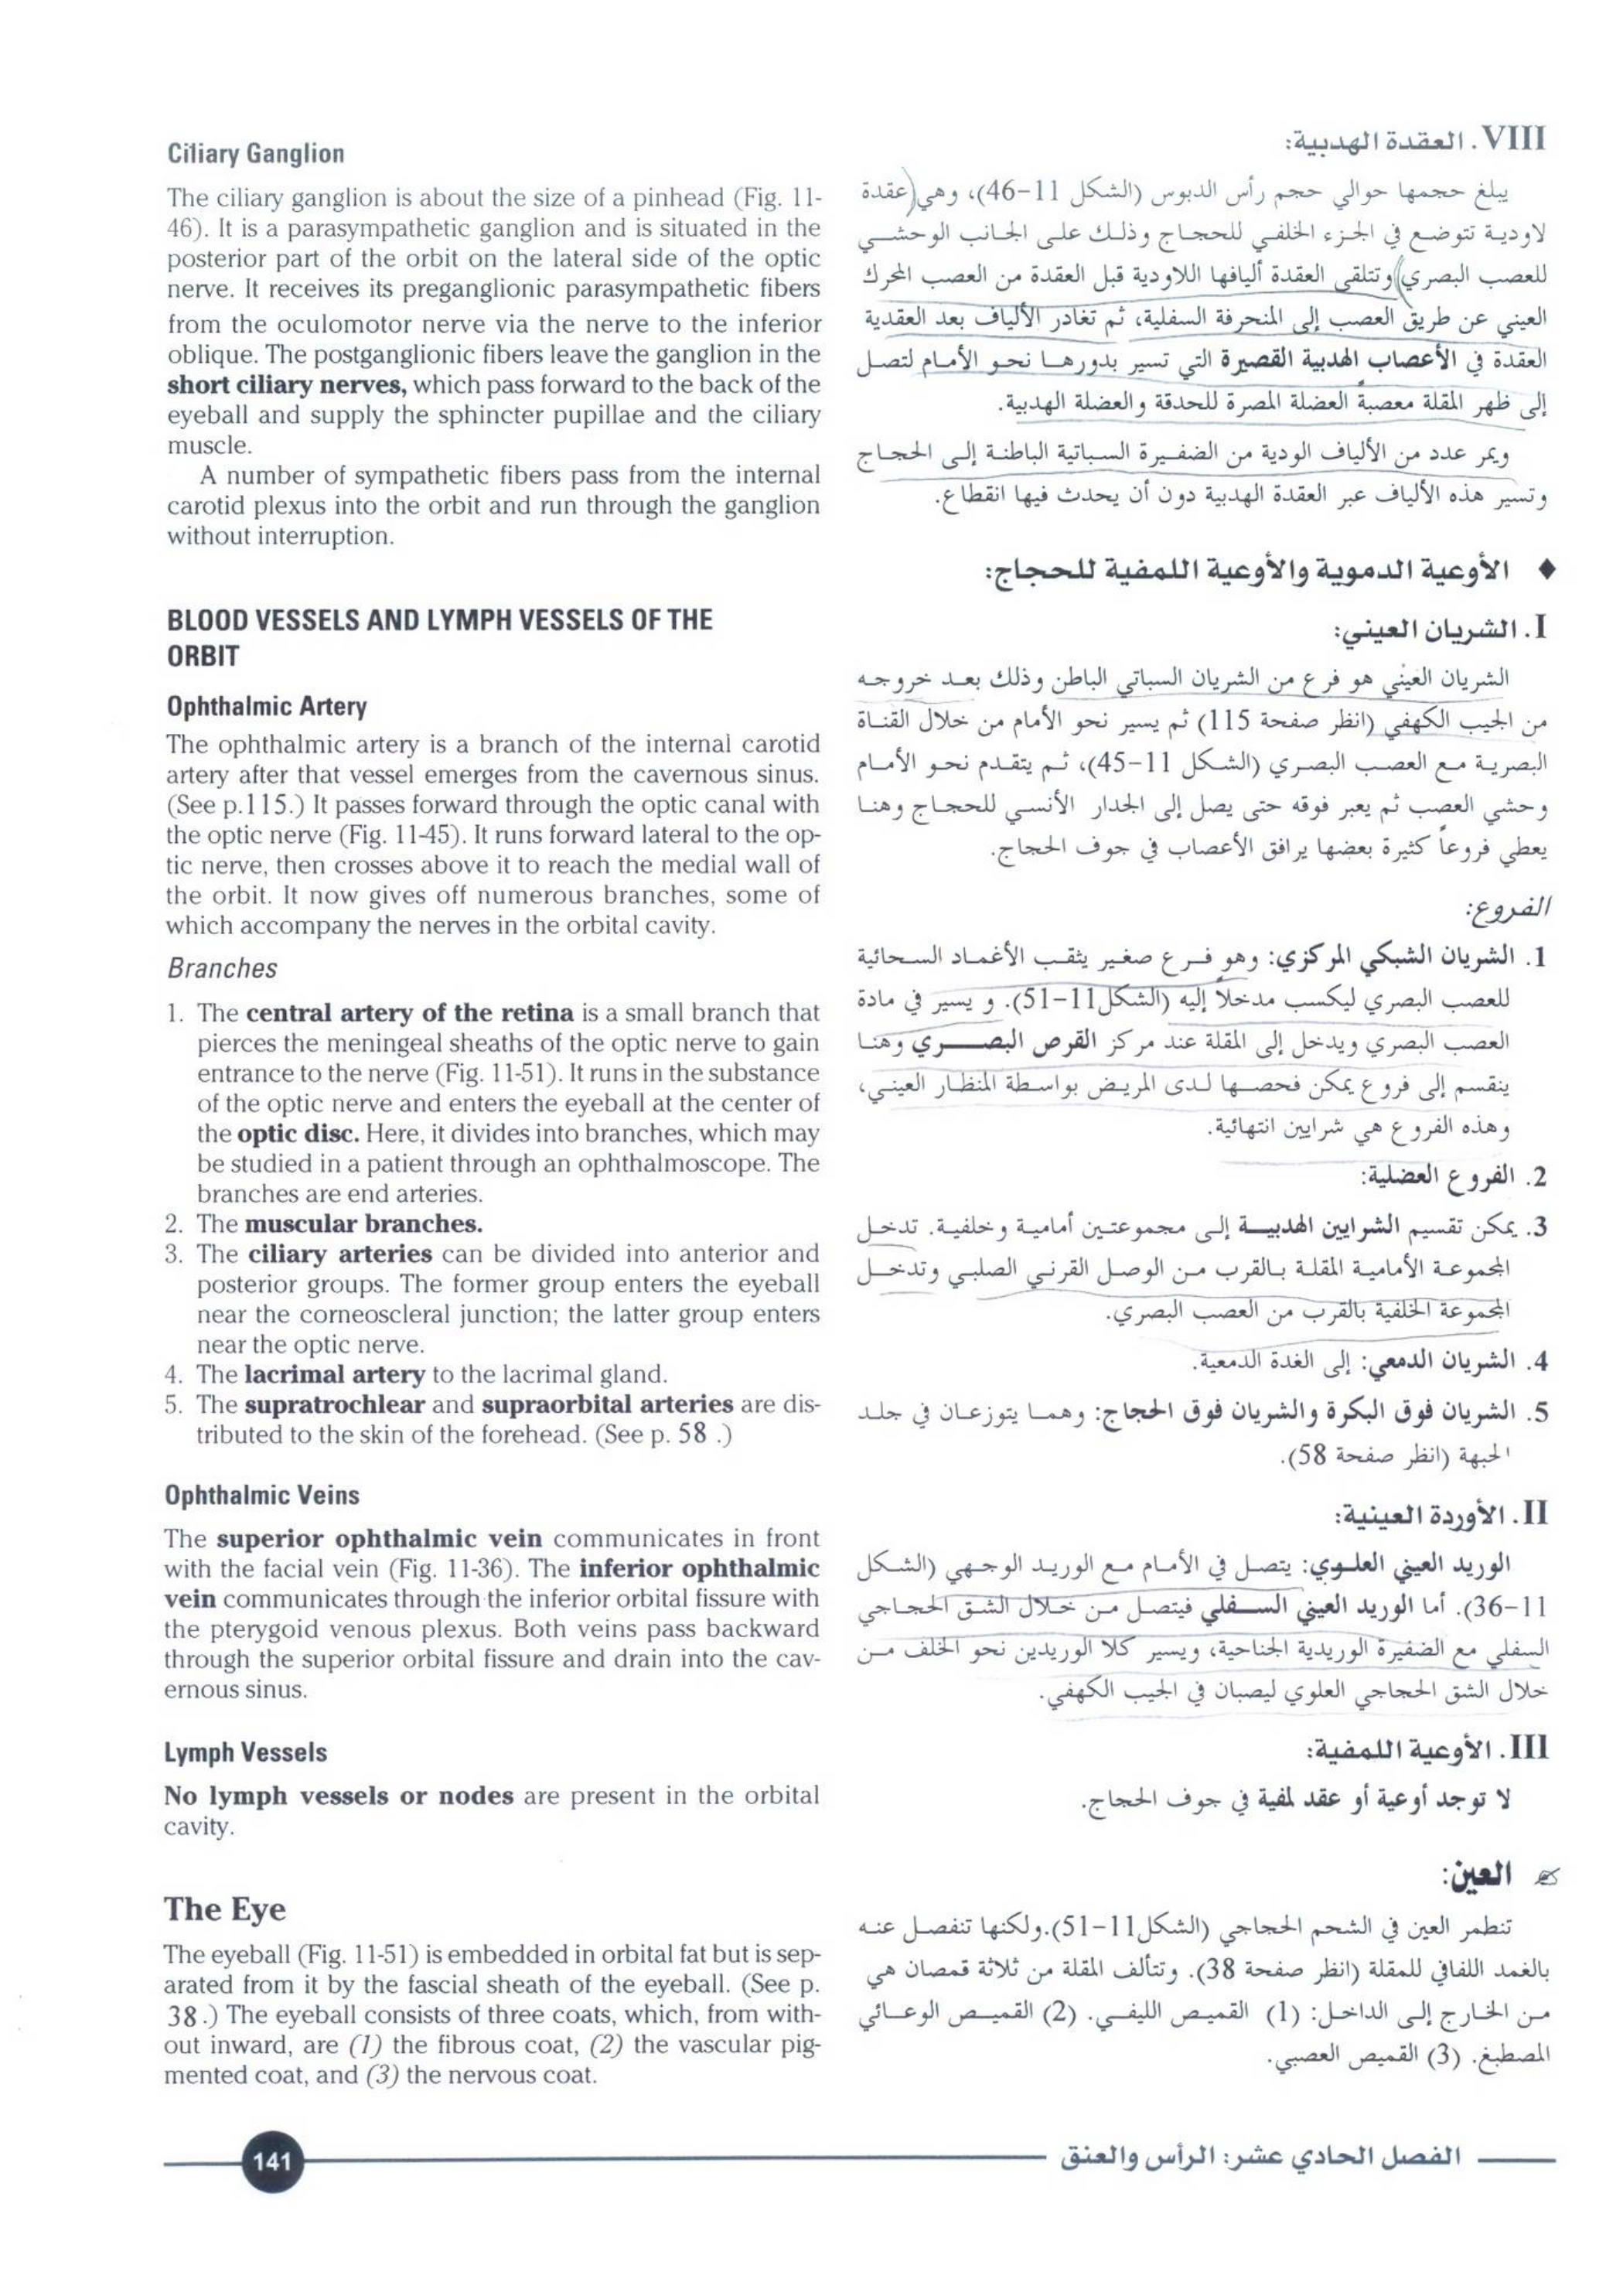 Ciliary Ganglion
The ciliary ganglion is about the size of a pinhead (Fig. 11-
46). It is a parasympathetic ganglion and is situated in the
posterior part of the orbit on the lateral side of the optic
nerve. It receives its preganglionic parasympathetic fibers
from the oculomotor nerve via the nerve to the inferior
oblique. The postganglionic fibers leave the ganglion in the
short ciliary nerves, which pass forward to the back of the
eyeball and supply the sphincter pupillae and the ciliary
muscle.
A number of sympathetic fibers pass from the internal
carotid plexus into the orbit and run through the ganglion
without interruption.
BLOOD VESSELS AND LYMPH VESSELS OF THE
ORBIT
Ophthalmic Artery
The ophthalmic artery is a branch of the internal carotid
artery after that vessel emerges from the cavernous sinus.
(See p.115.) It passes forward through the optic canal with
the optic nerve (Fig. 11-45). It runs forward lateral to the op-
tic nerve, then crosses above it to reach the medial wall of
the orbit. It now gives off numerous branches, some of
which accompany the nerves in the orbital cavity.
Branches
1. The central artery of the retina is a small branch that
pierces the meningeal sheaths of the optic nerve to gain
entrance to the nerve (Fig. 11-51). It runs in the substance
of the optic nerve and enters the eyeball at the center of
the optic disc. Here, it divides into branches, which may
be studied in a patient through an ophthalmoscope. The
branches are end arteries.
2. The muscular branches.
3. The ciliary arteries can be divided into anterior and
posterior groups. The former group enters the eyeball
near the corneoscleral junction; the latter group enters
near the optic nerve.
4. The lacrimal artery to the lacrimal gland.
5. The supratrochlear and supraorbital arteries are dis-
tributed to the skin of the forehead. (See p. 58 .)
Ophthalmic Veins
The superior ophthalmic vein communicates in front
with the facial vein (Fig. 11-36). The inferior ophthalmic
vein communicates through the inferior orbital fissure with
the pterygoid venous plexus. Both veins pass backward
through the superior orbital fissure and drain into the cav-
ernous sinus.
Lymph Vessels
No lymph vessels or nodes are present in the orbital
cavity.
The Eye
The eyeball (Fig. 11-51) is embedded in orbital fat but is sep-
arated from it by the fascial sheath of the eyeball. (See p.
38 .) The eyeball consists of three coats, which, from with-
out inward, are (1) the fibrous coat, (2) the vascular pig-
mented coat, and (3) the nervous coat.
VIII. العقدة الهدبية:
يبلغ حجمها حوالي حجم رأس الدبوس (الشكل 11-46)، وهي (عقدة
لاودية تتوضع في الجزء الخلفي للحجاج وذلك على الجانب الوحشي
للعصب البصري) وتتلقى العقدة أليافها اللاودية قبل العقدة من العصب المحرك
العيني عن طريق العصب إلى المنحرفة السفلية، ثم تغادر الألياف بعد العقدية
العقدة في الأعصاب الهدبية القصيرة التي تسير بدورها نحو الأمام لتصل
إلى ظهر المقلة معصبة العضلة المصرة للحدقة والعضلة الهدبية.
ويمر عدد من الألياف الودية من الضفيرة السباتية الباطنة إلى الحجاج
وتسير هذه الألياف عبر العقدة الهدبية دون أن يحدث فيها انقطاع.
♦ الأوعية الدموية والأوعية اللمفية للحجاج:
I. الشريان العيني:
الشريان العيني هو فرع من الشريان السباتي الباطن وذلك بعد خروجه
من الجيب الكهفي (انظر صفحة 115) ثم يسير نحو الأمام من خلال القناة
البصرية مع العصب البصري (الشكل 11-45)، ثم يتقدم نحو الأمام
وحشي العصب ثم يعبر فوقه حتى يصل إلى الجدار الأنسي للحجاج وهنا
يعطي فروعاً كثيرة بعضها يرافق الأعصاب في جوف الحجاج.
الفروع:
1. الشريان الشبكي المركزي: وهو فرع صغير يثقب الأغماد السحائية
للعصب البصري ليكسب مدخلاً إليه (الشكل11-51). و يسير في مادة
العصب البصري ويدخل إلى المقلة عند مركز القرص البصري وهنا
ينقسم إلى فروع يمكن فحصها لدى المريض بواسطة المنظار العيني،
وهذه الفروع هي شرايين انتهائية.
2. الفروع العضلية:
3. يمكن تقسيم الشرايين الهدبية إلى مجموعتين أمامية وخلفية. تدخل
المجموعة الأمامية المقلة بالقرب من الوصل القرني الصلبي وتدخل
المجموعة الخلفية بالقرب من العصب البصري.
4. الشريان الدمعي: إلى الغدة الدمعية.
5. الشريان فوق البكرة والشريان فوق الحجاج: وهما يتوزعان في جلد
الجبهة (انظر صفحة 58).
II. الأوردة العينية:
الوريد العيني العلوي: يتصل في الأمام مع الوريد الوجهي (الشكل
11-36). أما الوريد العيني السفلي فيتصل من خلال الشق الحجاجي
السفلي مع الضفيرة الوريدية الجناحية، ويسير كلا الوريدين نحو الخلف من
خلال الشق الحجاجي العلوي ليصبان في الجيب الكهفي.
III. الأوعية اللمفية:
لا توجد أوعية أو عقد لمفية في جوف الحجاج.
العين:
تنطمر العين في الشحم الحجاجي (الشكل11-51).ولكنها تنفصل عنه
بالغمد اللفافي للمقلة (انظر صفحة 38). وتتألف المقلة من ثلاثة قمصان هي
من الخارج إلى الداخل: (1) القميص الليفي. (2) القميص الوعائي
المصطبغ. (3) القميص العصبي.
141
الفصل الحادي عشر: الرأس والعنق